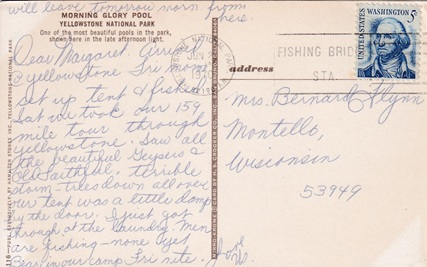 will leave tomorrow morn from
here.
MORNING GLORY POOL
YELLOWSTONE NATIONAL PARK
One of the most beautiful pools in the park,
shown here in the late afternoon light.
Dear Margaret, Arrived
@ yellowstone Fri morn
set up tent & fished
Sat we took our 159
mile tour through
Yellowstone. Saw all
the beautiful Geysers &
Old Faithful, terrible
storm - trees down all over
our tent was a little damp
by the door. I just got
through at the laundry. Men
are fishing - none yet
Bear in our camp Fri nite.
address
FISHING BRIDGE
STA.
UNITED STATES
WASHINGTON 5¢
Mrs. Bernard Flynn
Montello,
Wisconsin
53949